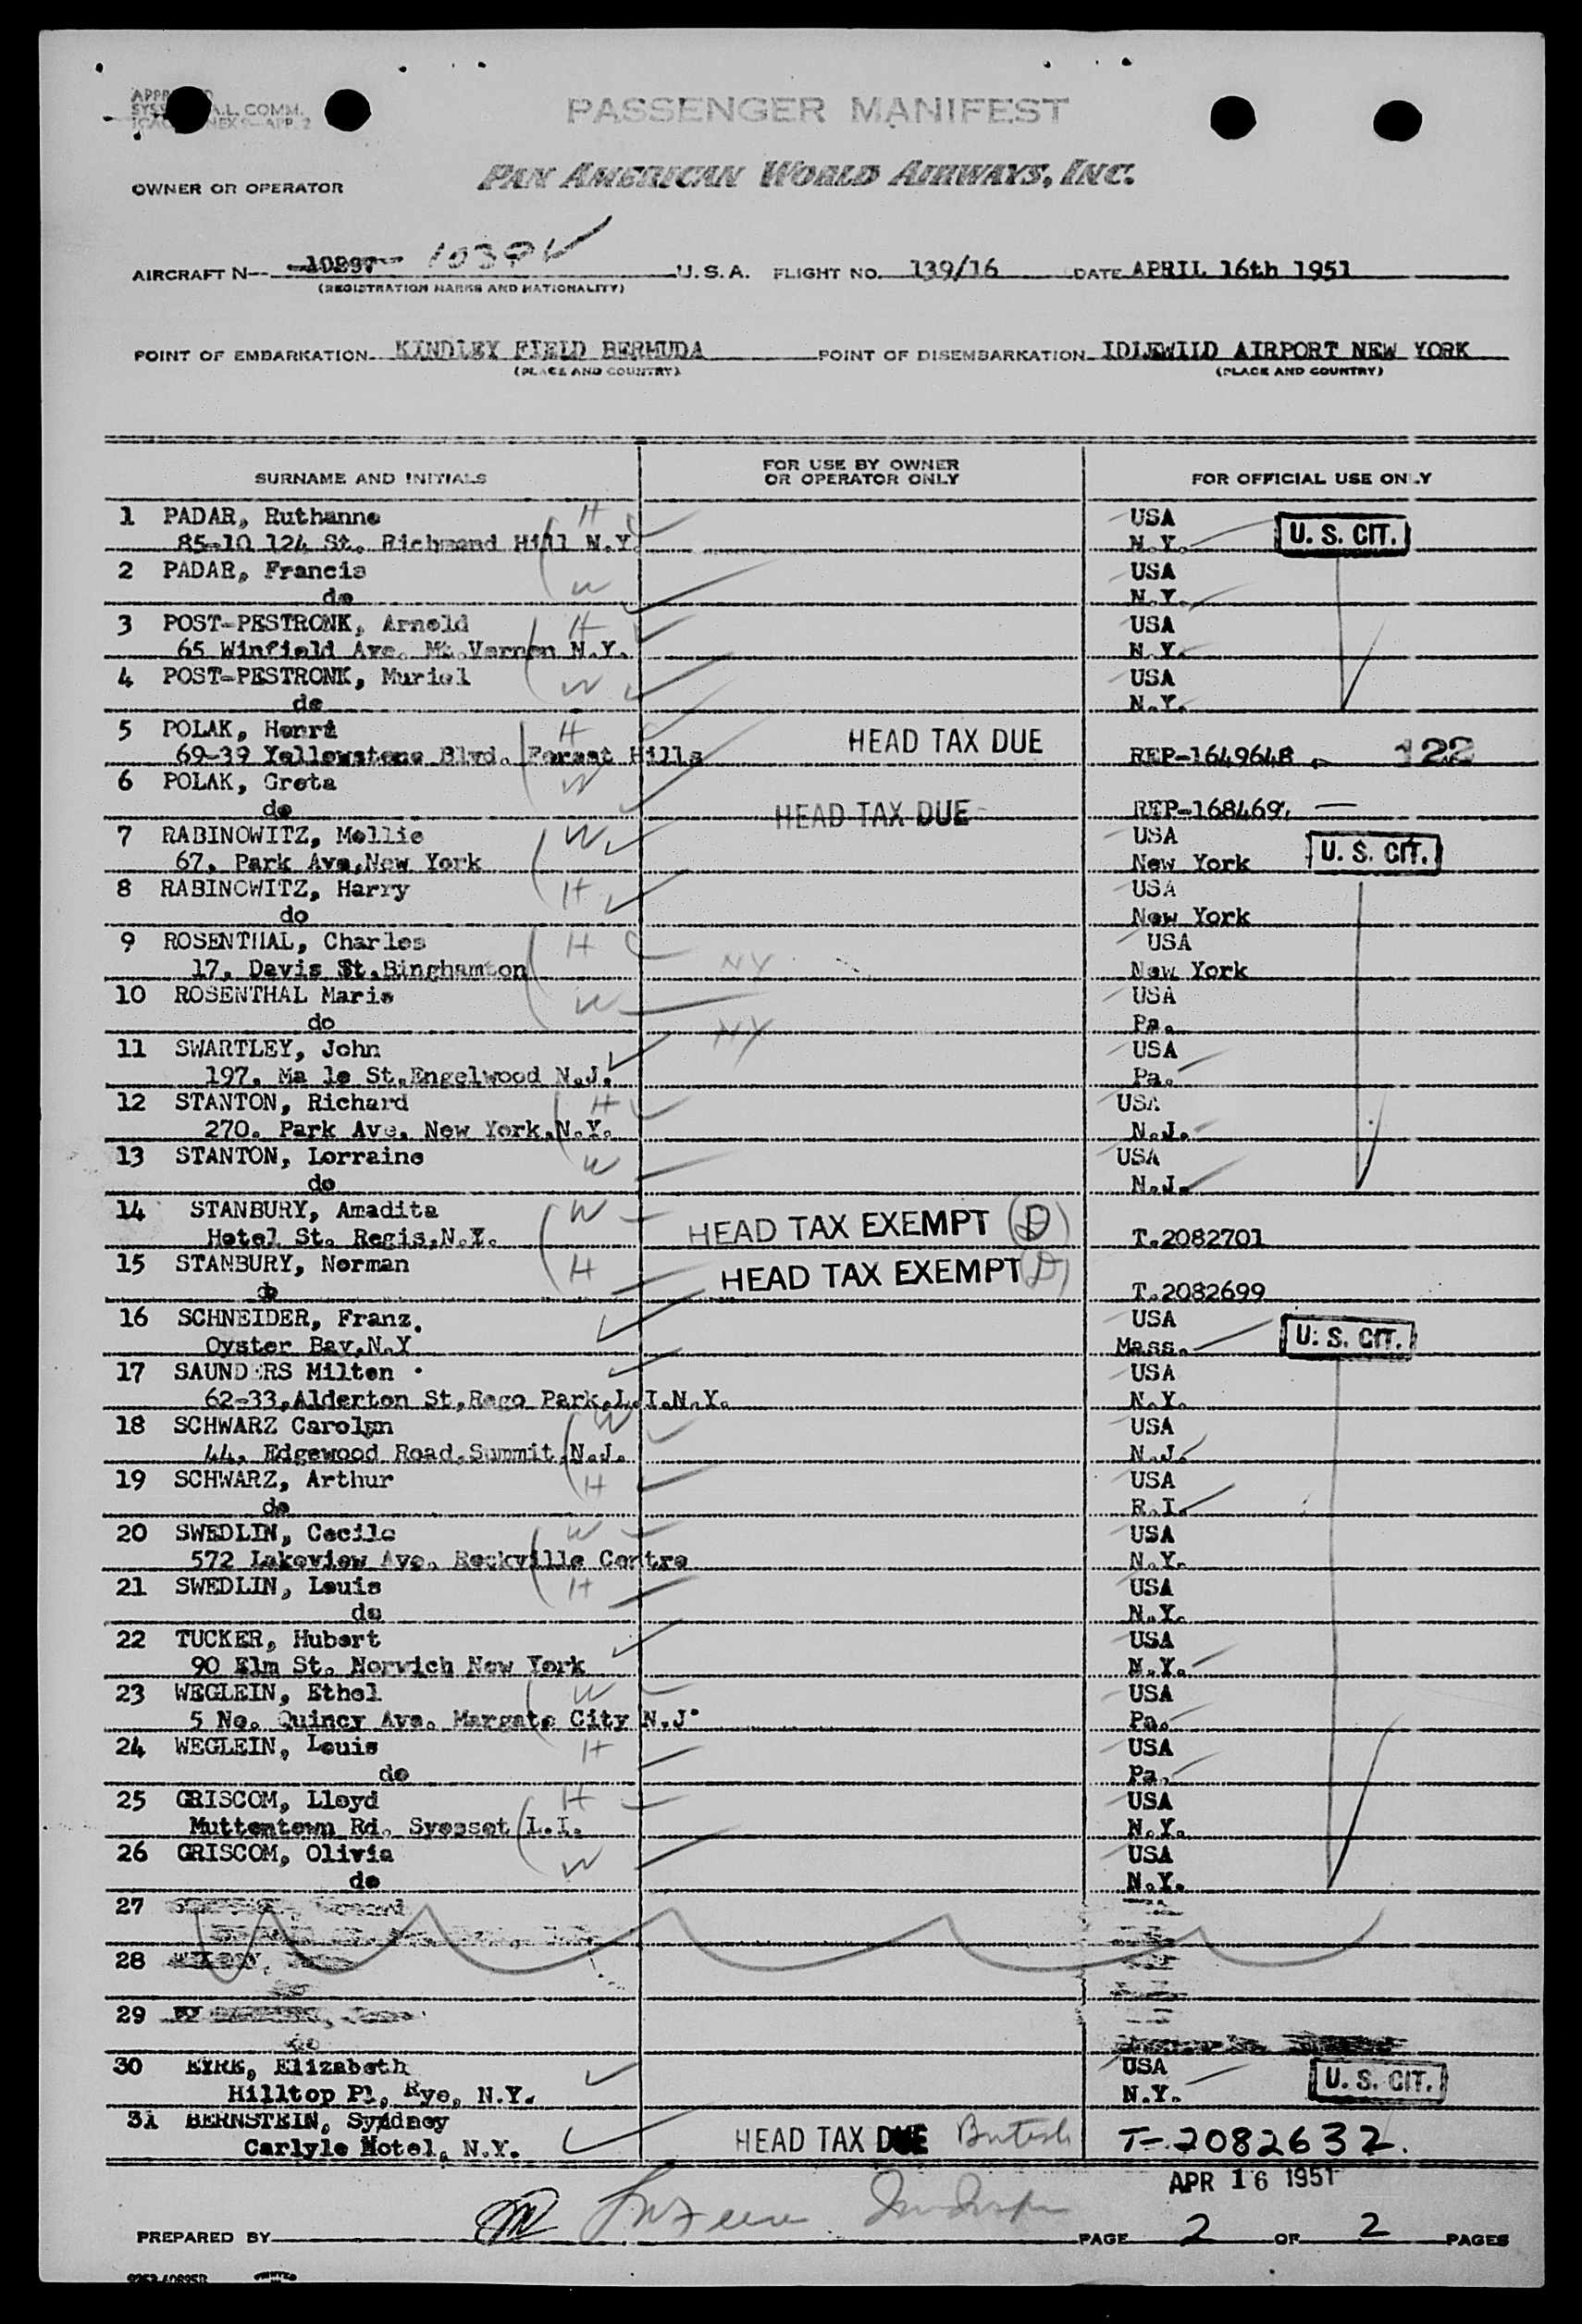 A.L. COMM.
PASSENGER MANIFEST
PAN AMERICAN WORLD AIRWAYS, INC.
OWNER OR OPERATOR
AIRCRAFT N-- U.S.A. FLIGHT NO. 139/16 DATE APRIL 16th 1951
(REGISTRATION MARKS AND NATIONALITY)
POINT OF EMBARKATION KINDLEY FIELD BERMUDA POINT OF DISEMBARKATION IDLEWILD AIRPORT NEW YORK
(PLACE AND COUNTRY) (PLACE AND COUNTRY)
SURNAME AND INITIALS FOR USE BY OWNER OR OPERATOR ONLY FOR OFFICIAL USE ONLY
1 PADAR, Ruthanne H USA
85-10 124 St. Richmond Hill N.Y. N.Y. U. S. CIT.
2 PADAR, Francis W USA
do N.Y.
3 POST-PESTRONK, Arnold H USA
65 Winfield Ave. Mt.Vernon N.Y. N.Y.
4 POST-PESTRONK, Muriel W USA
do N.Y.
5 POLAK, Henri H HEAD TAX DUE
69-39 Yellowstone Blvd. Forest Hills REP-1649648 122
6 POLAK, Greta W
do HEAD TAX DUE REP-168469
7 RABINOWITZ, Mollie W USA
67, Park Ave,New York New York U. S. CIT.
8 RABINOWITZ, Harry H USA
do New York
9 ROSENTHAL, Charles H USA
17, Davis St.Binghamton NY New York
10 ROSENTHAL Marie W USA
do NY Pa.
11 SWARTLEY, John USA
197, Ma le St.Engelwood N.J. Pa.
12 STANTON, Richard H USA
270. Park Ave. New York,N.Y. N.J.
13 STANTON, Lorraine W USA
do N.J.
14 STANBURY, Amadita W HEAD TAX EXEMPT (D)
Hotel St. Regis,N.Y. T.2082701
15 STANBURY, Norman H HEAD TAX EXEMPT (D)
do T.2082699
16 SCHNEIDER, Franz. USA
Oyster Bay,N.Y Mass. U. S. CIT.
17 SAUNDERS Milton . USA
62-33,Alderton St,Rego Park,L.I.N.Y. N.Y.
18 SCHWARZ Carolyn W USA
44, Edgewood Road,Summit,N.J. N.J.
19 SCHWARZ, Arthur H USA
do R.I.
20 SWEDLIN, Cecile W USA
572 Lakeview Ave. Rockville Centre N.Y.
21 SWEDLIN, Louis H USA
do N.Y.
22 TUCKER, Hubert USA
90 Elm St. Norwich New York N.Y.
23 WEGLEIN, Ethel W USA
5 No. Quincy Ave. Margate City N.J. Pa.
24 WEGLEIN, Louis H USA
do Pa.
25 GRISCOM, Lloyd H USA
Muttontown Rd. Syosset L.I. N.Y.
26 GRISCOM, Olivia W USA
do N.Y.
27
28
29
30 EYRE, Elizabeth USA
Hilltop Pl, Rye, N.Y. N.Y. U. S. CIT.
31 BERNSTEIN, Sydney
Carlyle Hotel, N.Y. HEAD TAX DUE British T-2082632.
APR 16 1951
PREPARED BY PAGE 2 OF 2 PAGES